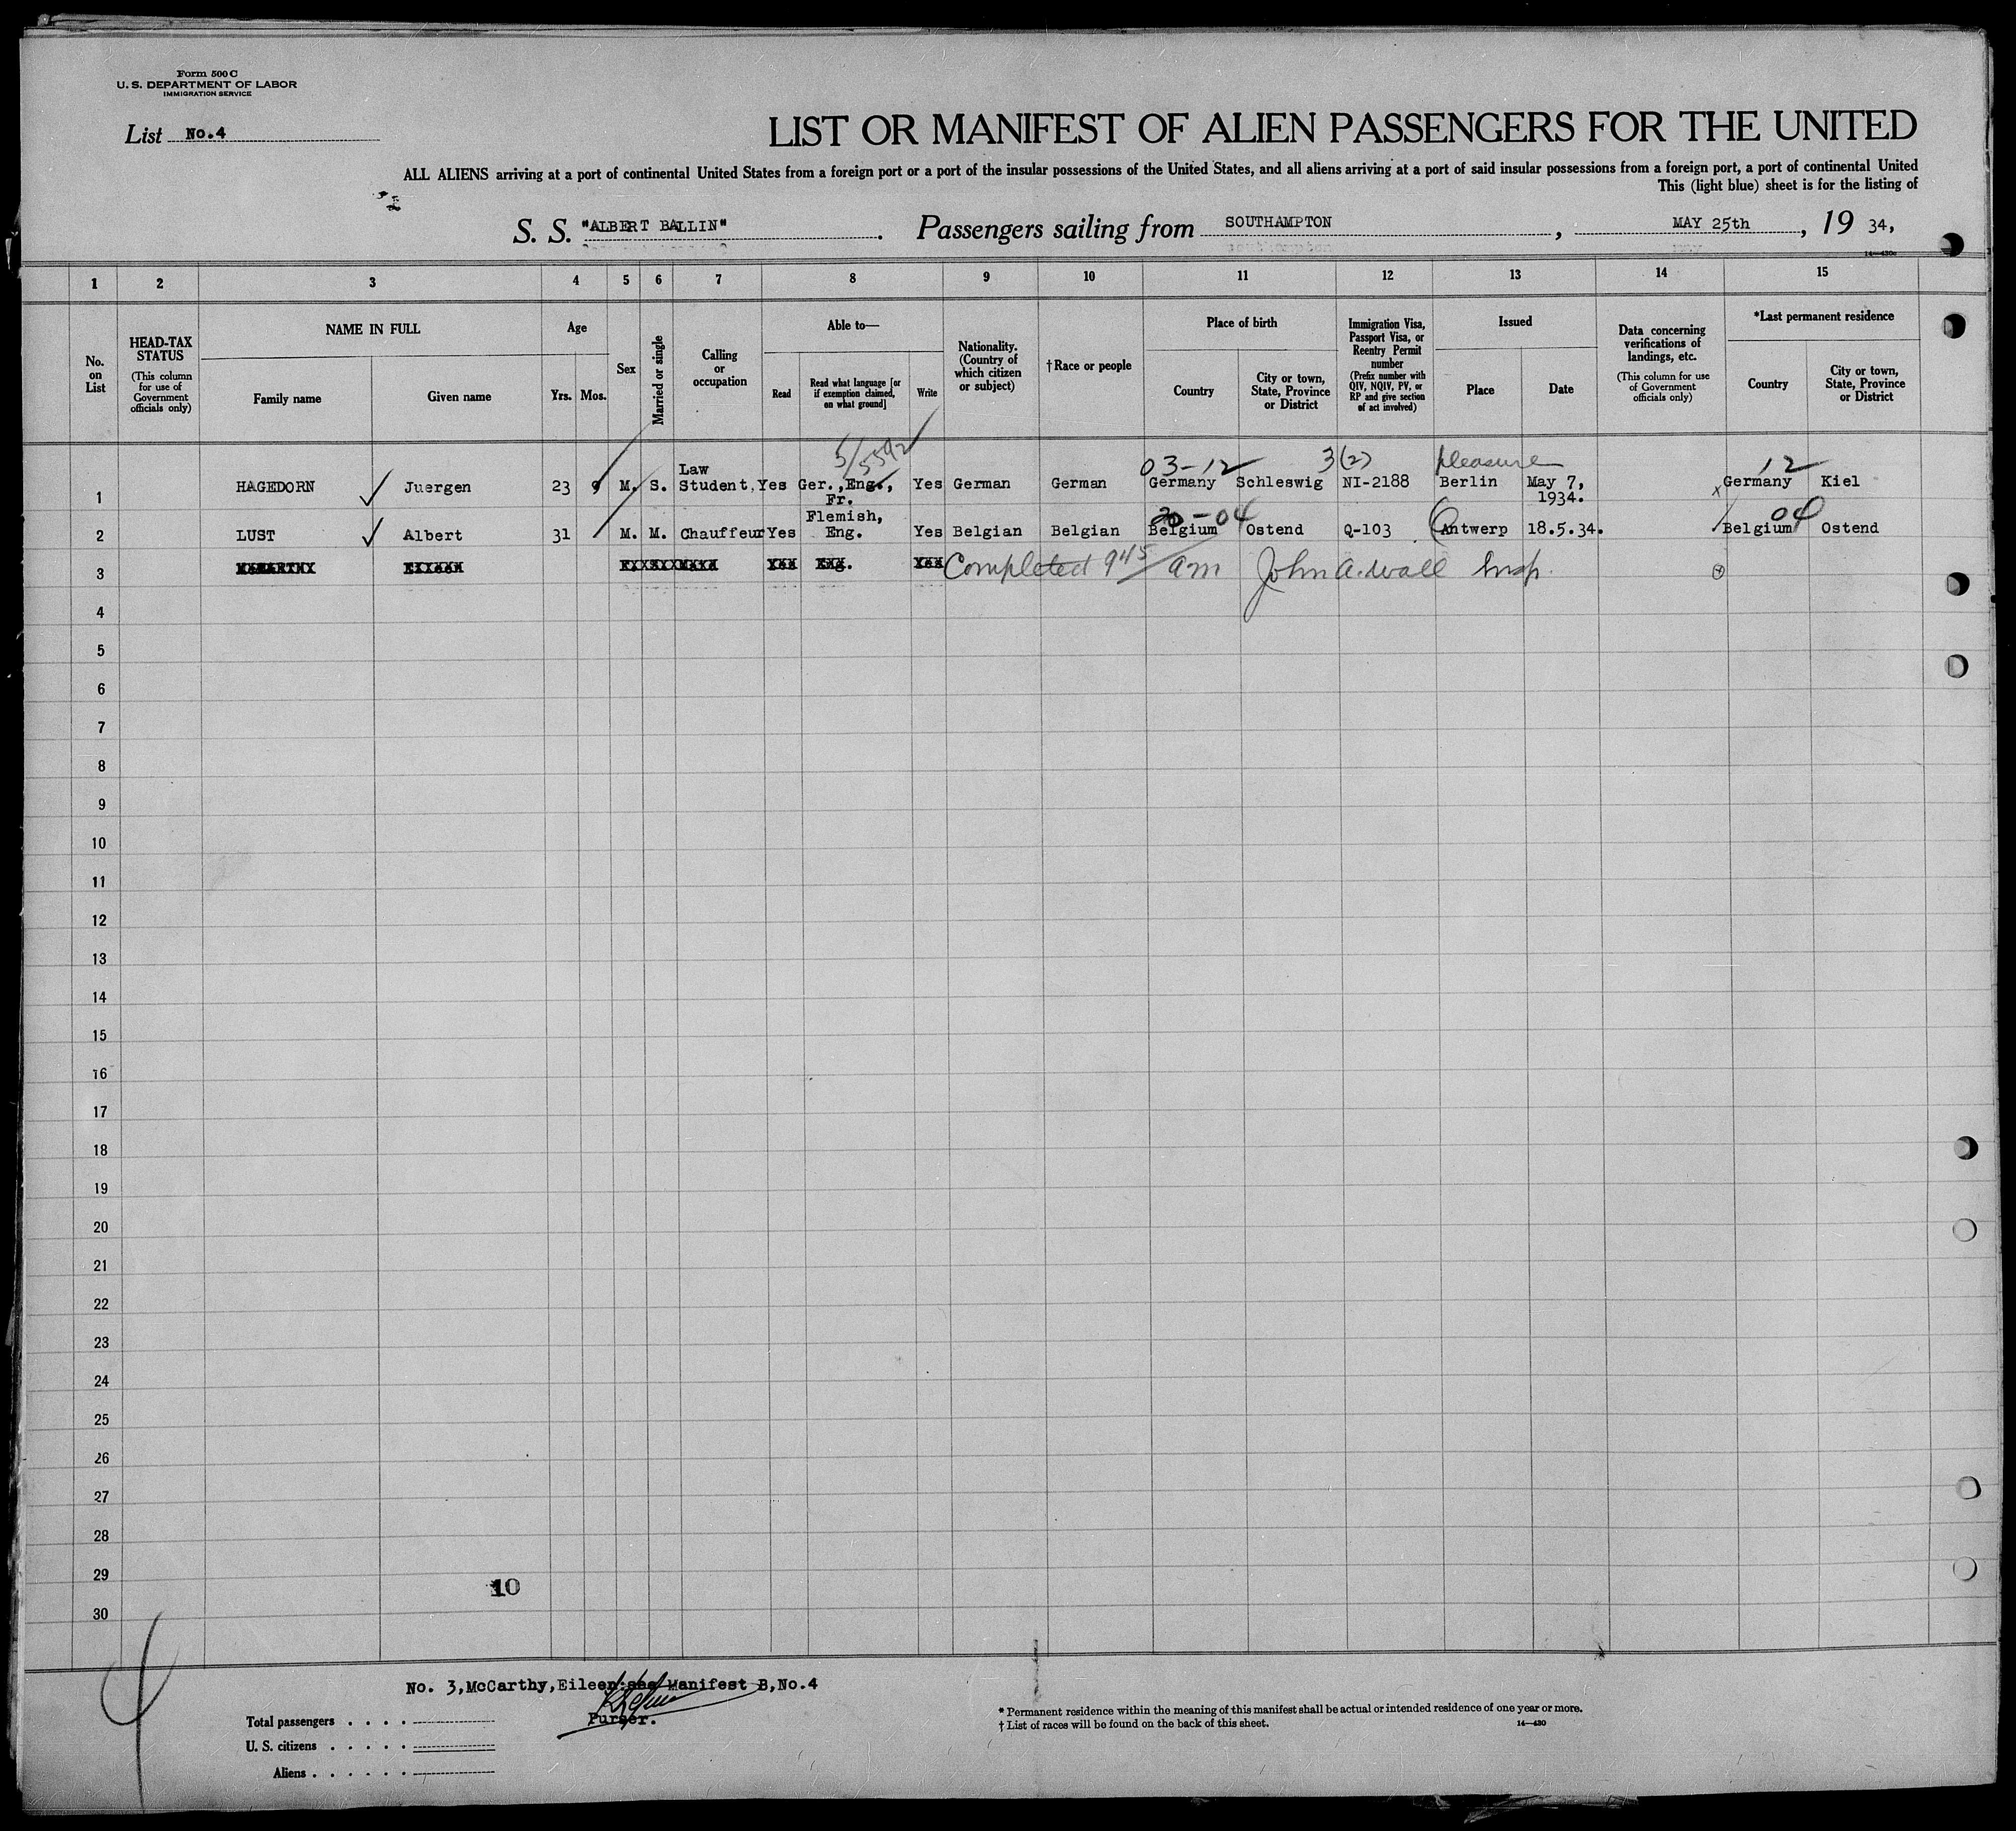 Form 500 C
U. S. DEPARTMENT OF LABOR
IMMIGRATION SERVICE
List No.4
LIST OR MANIFEST OF ALIEN PASSENGERS FOR THE UNITED
ALL ALIENS arriving at a port of continental United States from a foreign port or a port of the insular possessions of the United States, and all aliens arriving at a port of said insular possessions from a foreign port, a port of continental United
This (light blue) sheet is for the listing of
S. S. "ALBERT BALLIN". Passengers sailing from SOUTHAMPTON, MAY 25th, 19 34,
14-430c
1 2 3 4 5 6 7 8 9 10 11 12 13 14 15
No. on List
HEAD-TAX STATUS
(This column for use of Government officials only)
NAME IN FULL
Family name
Given name
Age
Yrs. Mos.
Sex
Married or single
Calling or occupation
Able to—
Read
Read what language [or if exemption claimed, on what ground]
Write
Nationality. (Country of which citizen or subject)
†Race or people
Place of birth
Country
City or town, State, Province or District
Immigration Visa, Passport Visa, or Reentry Permit number
(Prefix number with QIV, NQIV, PV, or RP and give section of act involved)
Issued
Place
Date
Data concerning verifications of landings, etc.
(This column for use of Government officials only)
*Last permanent residence
Country
City or town, State, Province or District
5/5592
03-12 3(2) pleasure 12
1 HAGEDORN Juergen 23 9 M. S. Law Student, Yes Ger.,Eng., Fr. Yes German German Germany Schleswig NI-2188 Berlin May 7, 1934. Germany Kiel
20-04 04
2 LUST Albert 31 M. M. Chauffeur Yes Flemish, Eng. Yes Belgian Belgian Belgium Ostend Q-103 Antwerp 18.5.34. Belgium Ostend
3 McCARTHY Eileen Yes Eng. Yes Completed 9 45 am John A. Wall Insp.
4
5
6
7
8
9
10
11
12
13
14
15
16
17
18
19
20
21
22
23
24
25
26
27
28
29
10
30
No. 3,McCarthy,Eileen:see Manifest B,No.4
Purser.
Total passengers
U. S. citizens
Aliens
* Permanent residence within the meaning of this manifest shall be actual or intended residence of one year or more.
† List of races will be found on the back of this sheet.
14-430